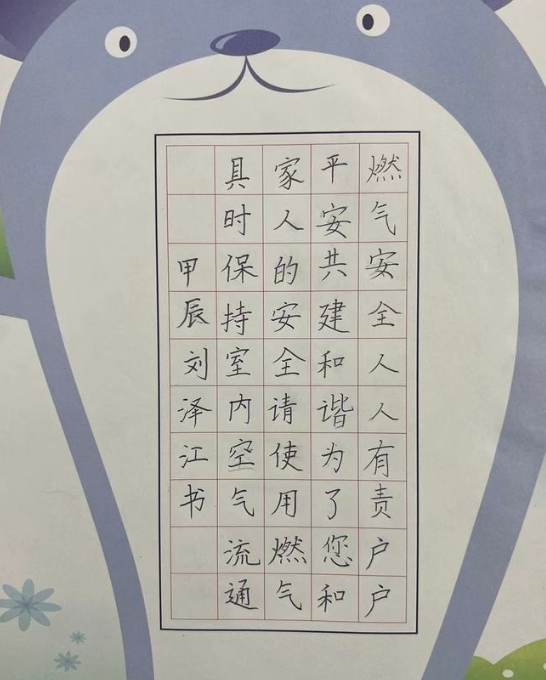 燃气安全人人有责户户
平安共建和谐为了您和
家人的安全请使用燃气
具时保持室内空气流通
甲辰刘泽江书